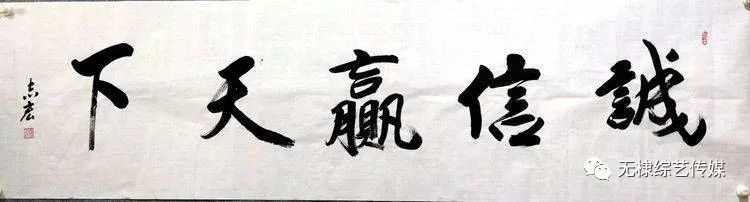 誠信贏天下
志宏
无棣综艺传媒